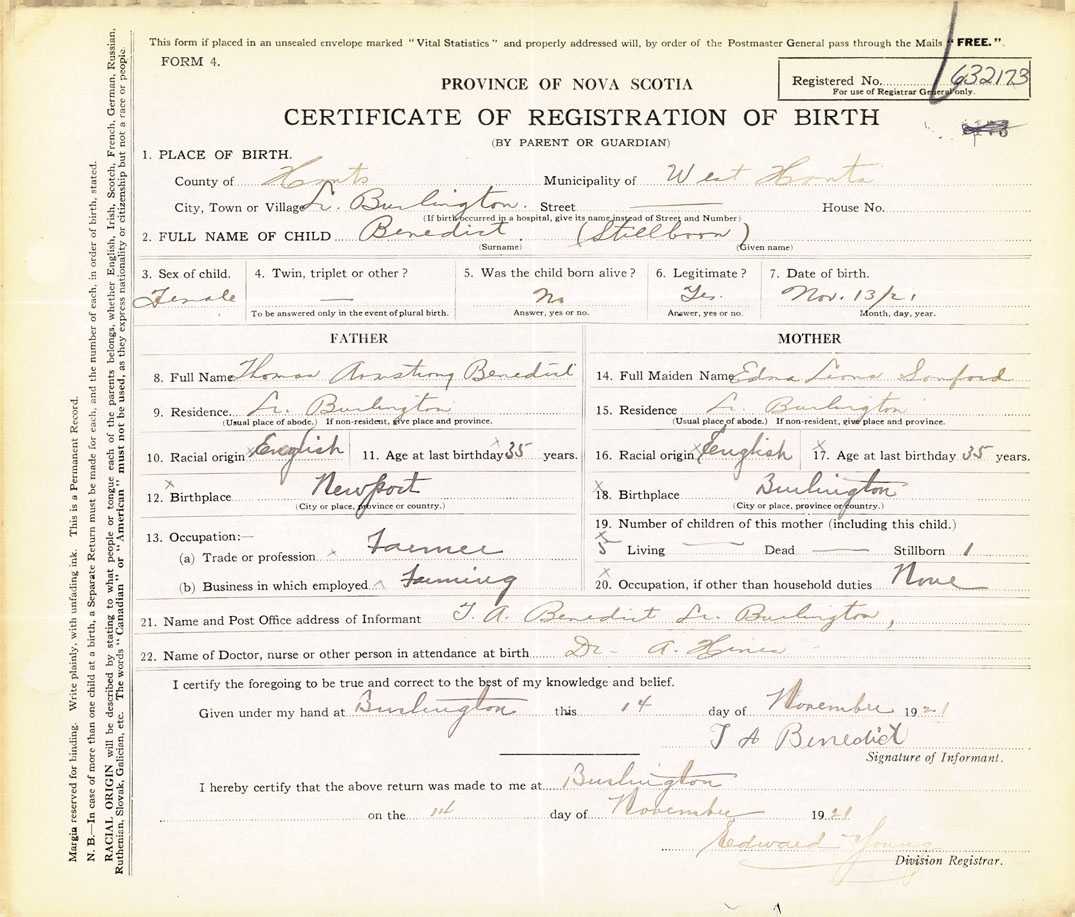 This form if placed in an unsealed envelope marked "Vital Statistics" and properly addressed will, by order of the Postmaster General pass through the Mails "FREE."
FORM 4.
Registered No. 632173
For use of Registrar General only.
PROVINCE OF NOVA SCOTIA
CERTIFICATE OF REGISTRATION OF BIRTH
(BY PARENT OR GUARDIAN)
1. PLACE OF BIRTH.
County of Hants Municipality of West Hants
City, Town or Village Lr. Burlington. Street House No.
(If birth occurred in a hospital, give its name instead of Street and Number)
2. FULL NAME OF CHILD Benedict (Stillborn)
(Surname) (Given name)
3. Sex of child. 4. Twin, triplet or other? 5. Was the child born alive? 6. Legitimate? 7. Date of birth.
Female — No Yes. Nov. 13/21
To be answered only in the event of plural birth. Answer, yes or no. Answer, yes or no. Month, day, year.
FATHER MOTHER
8. Full Name Thomas Armstrong Benedict 14. Full Maiden Name Edna Leona Sanford
9. Residence Lr. Burlington 15. Residence Lr. Burlington
(Usual place of abode.) If non-resident, give place and province. (Usual place of abode.) If non-resident, give place and province.
10. Racial origin English 11. Age at last birthday 35 years. 16. Racial origin English 17. Age at last birthday 35 years.
12. Birthplace Newport 18. Birthplace Burlington
(City or place, province or country.) (City or place, province or country.)
19. Number of children of this mother (including this child.)
13. Occupation:—
(a) Trade or profession Farmer 5 Living — Dead — Stillborn 1
(b) Business in which employed Farming 20. Occupation, if other than household duties None
21. Name and Post Office address of Informant T. A. Benedict Lr. Burlington,
22. Name of Doctor, nurse or other person in attendance at birth Dr - A. Hines
I certify the foregoing to be true and correct to the best of my knowledge and belief.
Given under my hand at Burlington this 14 day of Novembre 1921
T A Benedict
Signature of Informant.
I hereby certify that the above return was made to me at Burlington
on the 14 day of Novembre 1921
Edward Young
Division Registrar.
Margin reserved for binding. Write plainly, with unfading ink. This is a Permanent Record.
N. B.—In case of more than one child at a birth, a Separate Return must be made for each, and the number of each, in order of birth, stated.
RACIAL ORIGIN will be described by stating to what people or tongue each of the parents belongs, whether English, Irish, Scotch, French, German, Russian,
Ruthenian, Slovak, Galician, etc. The words "Canadian" or "American" must not be used, as they express nationality or citizenship but not a race or people.